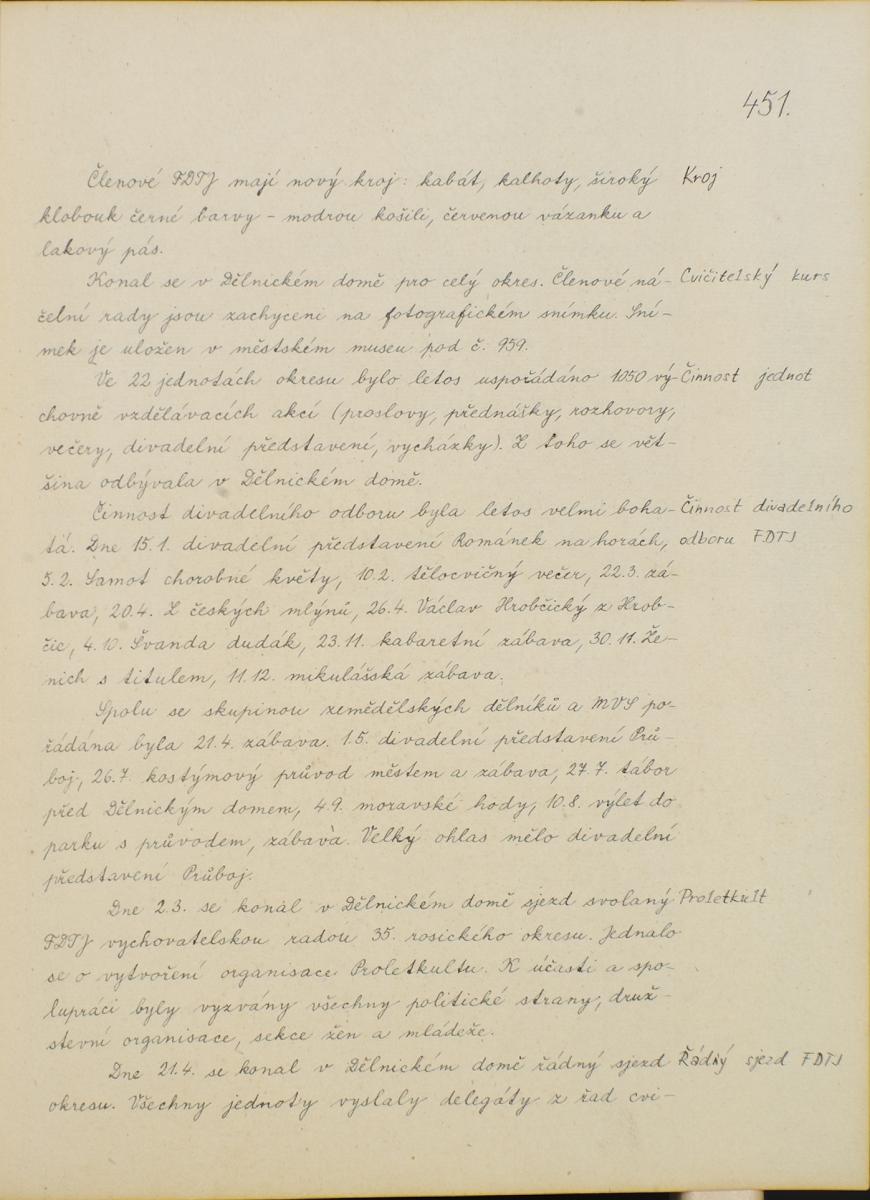 451.
Členové FDTJ mají nový kroj: kabát, kalhoty, široký Kroj
klobouk černé barvy - modrou košili, červenou vázanku a
lakový pás.
Konal se v Dělnickém domě pro celý okres. Členové ná- Cvičitelský kurs
čelní rady jsou zachyceni na fotografickém snímku. Sní-
mek je uložen v městském museu pod č. 959.
Ve 22 jednotách okresu bylo letos uspořádáno 1050 vý- Činnost jednot
chovně vzdělávacích akcí (proslovy, přednášky, rozhovory,
večery, divadelní představení, vycházky). Z toho se vět-
šina odbývala v Dělnickém domě.
Činnost divadelního odboru byla letos velmi boha- Činnost divadelního
tá. Dne 15.1. divadelní představení Románek na horách, odboru FDTJ
5.2. Samot chorobné květy, 10.2. tělocvičný večer, 22.3. zá-
bava, 20.4. Z českých mlýnů, 26.4. Václav Hrobčický z Hrob-
čic, 4.10. Švanda dudák, 23.11. kabaretní zábava, 30.11. Že-
nich s titulem, 11.12. mikulášská zábava.
Spolu se skupinou zemědělských dělníků a MVS po-
řádána byla 21.4. zábava. 1.5. divadelní představení Prů-
boj, 26.7. kostýmový průvod městem a zábava, 27.7. tábor
před Dělnickým domem, 4.9. moravské hody, 10.8. výlet do
parku s průvodem, zábava. Velký ohlas mělo divadelní
představení Průboj.
Dne 2.3. se konal v Dělnickém domě sjezd svolaný Proletkult
FDTJ vychovatelskou radou 35. rosického okresu. Jednalo
se o vytvoření organisace Proletkultu. K účasti a spo-
lupráci byly vyzvány všechny politické strany, druž-
stevní organisace, sekce žen a mládeže.
Dne 21.4. se konal v Dělnickém domě řádný sjezd Řádný sjezd FDTJ
okresu. Všechny jednoty vyslaly delegáty z řad cvi-